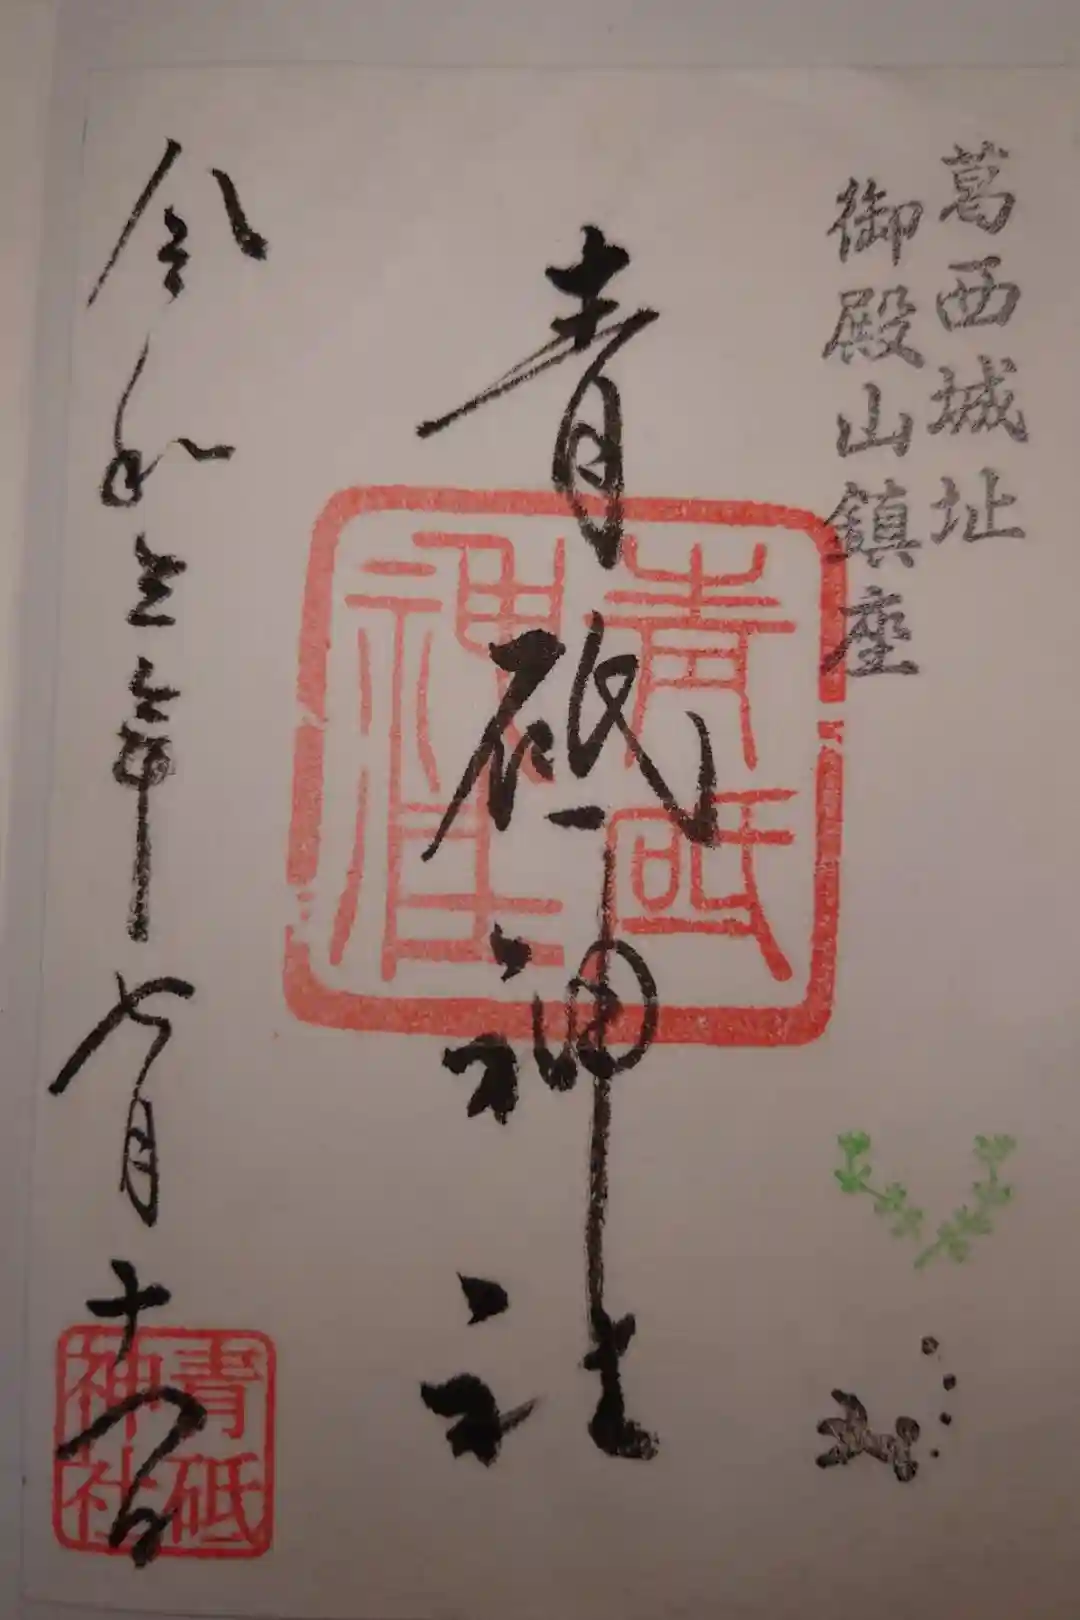 葛西城址
御殿山鎮座
青砥神社
青砥神社
令和三年七月十
青砥神社